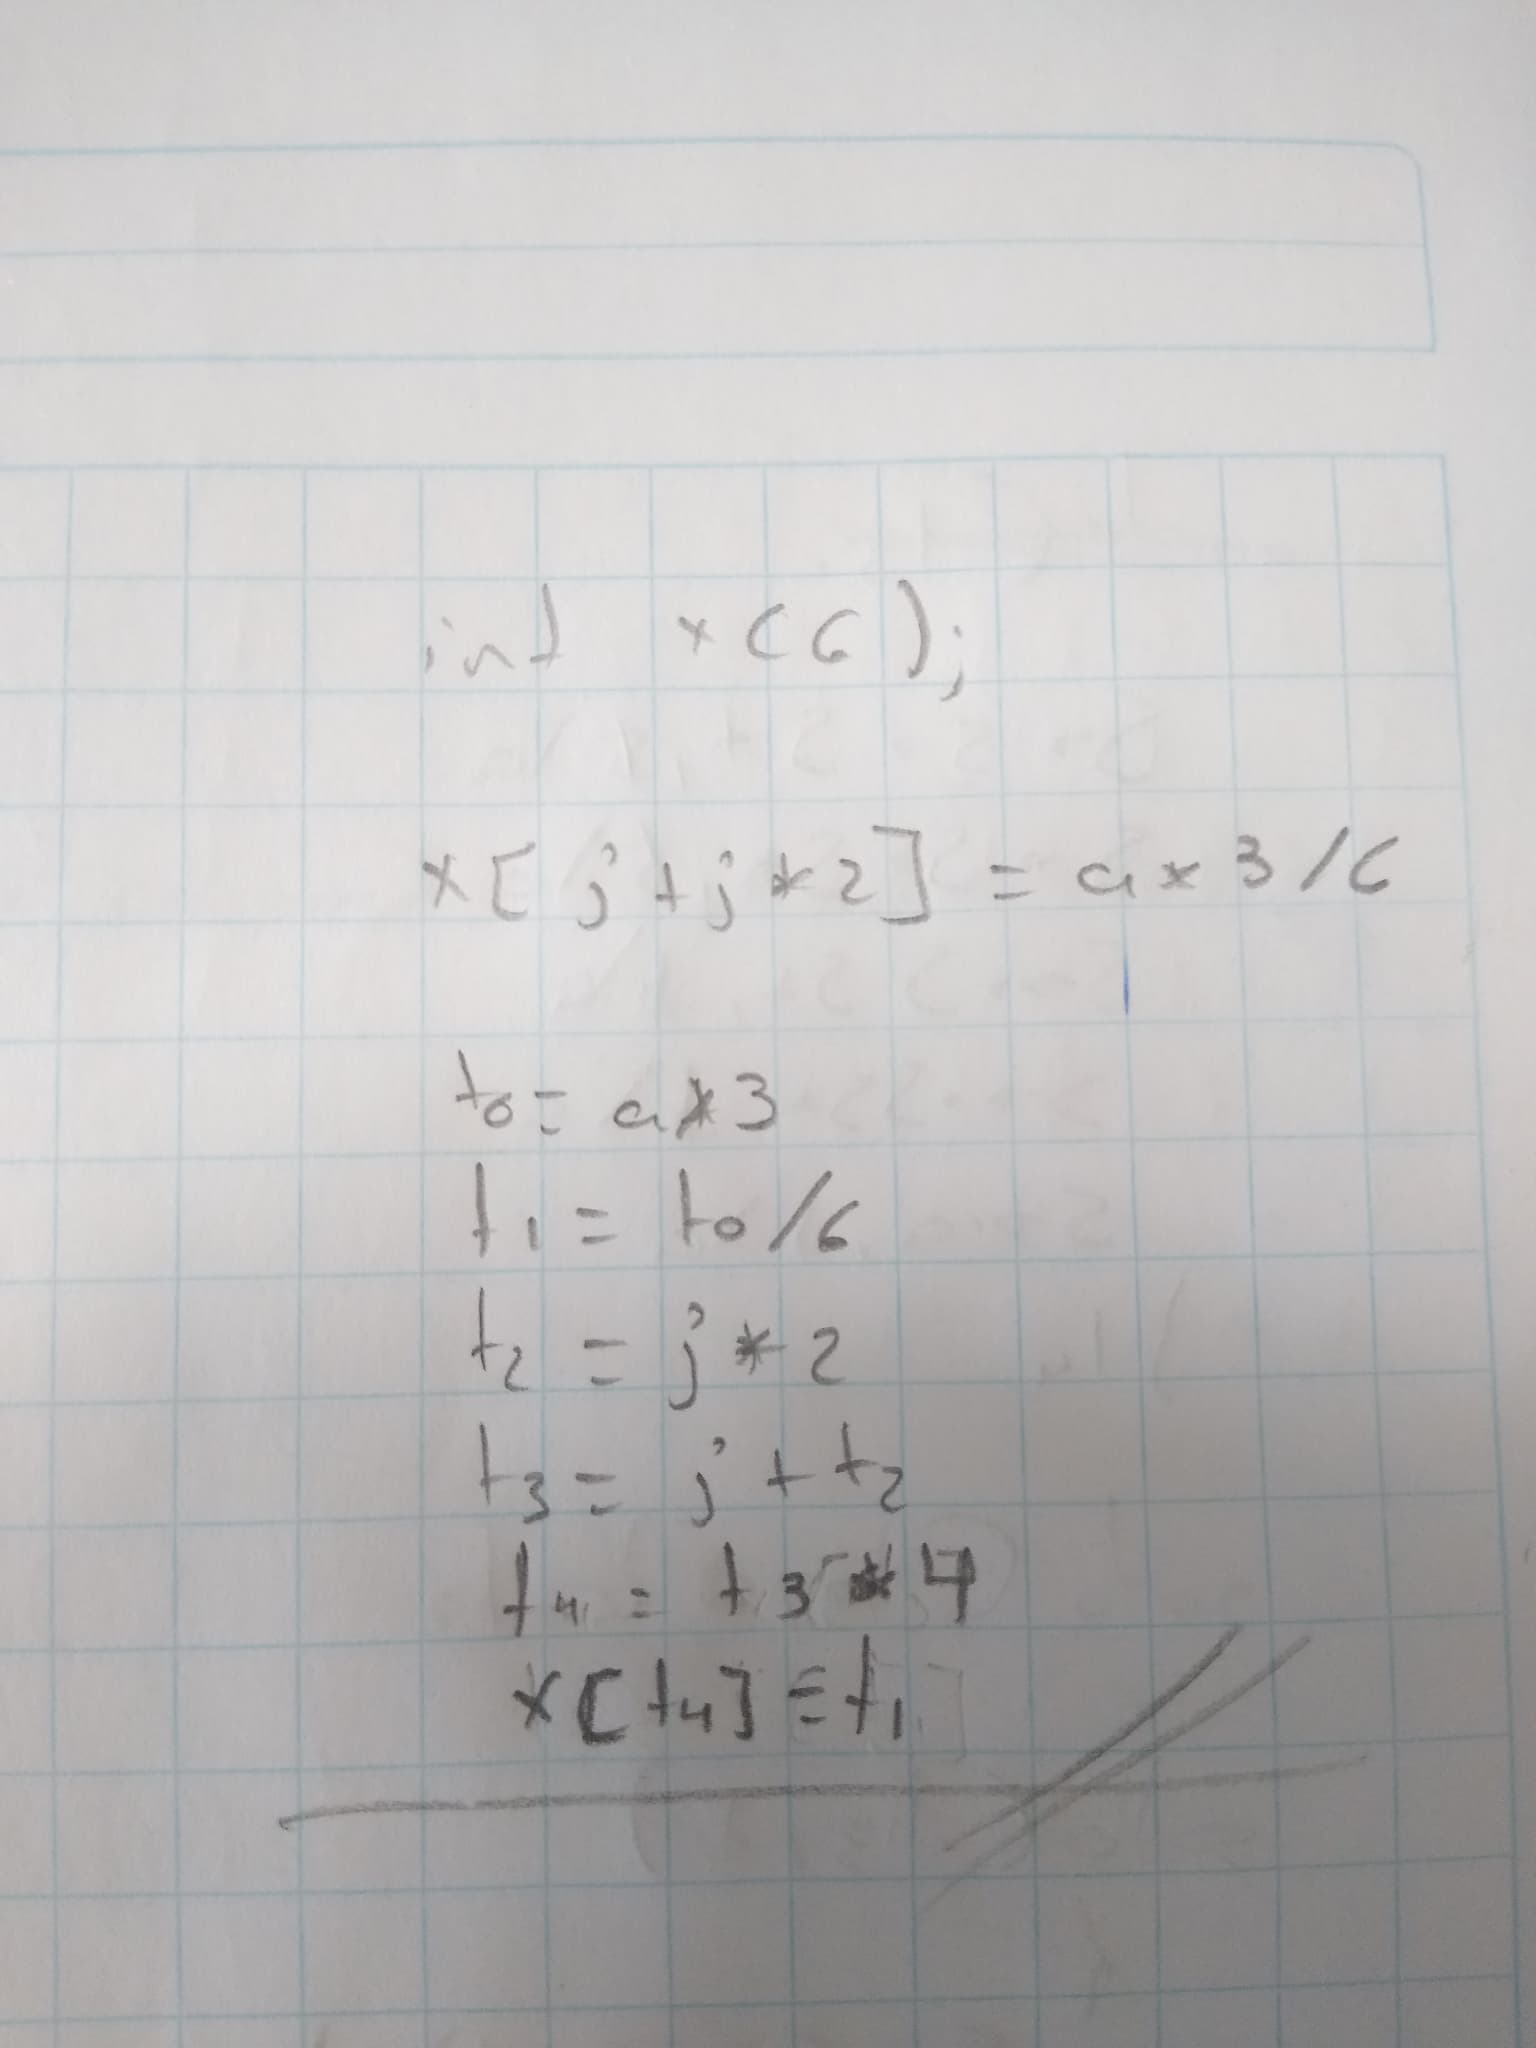 int x(6);
x[j+j*2] = a*3/6
t0 = a*3
t1 = t0/6
t2 = j*2
t3 = j+t2
t4 = t3*4
x[t4] = t1